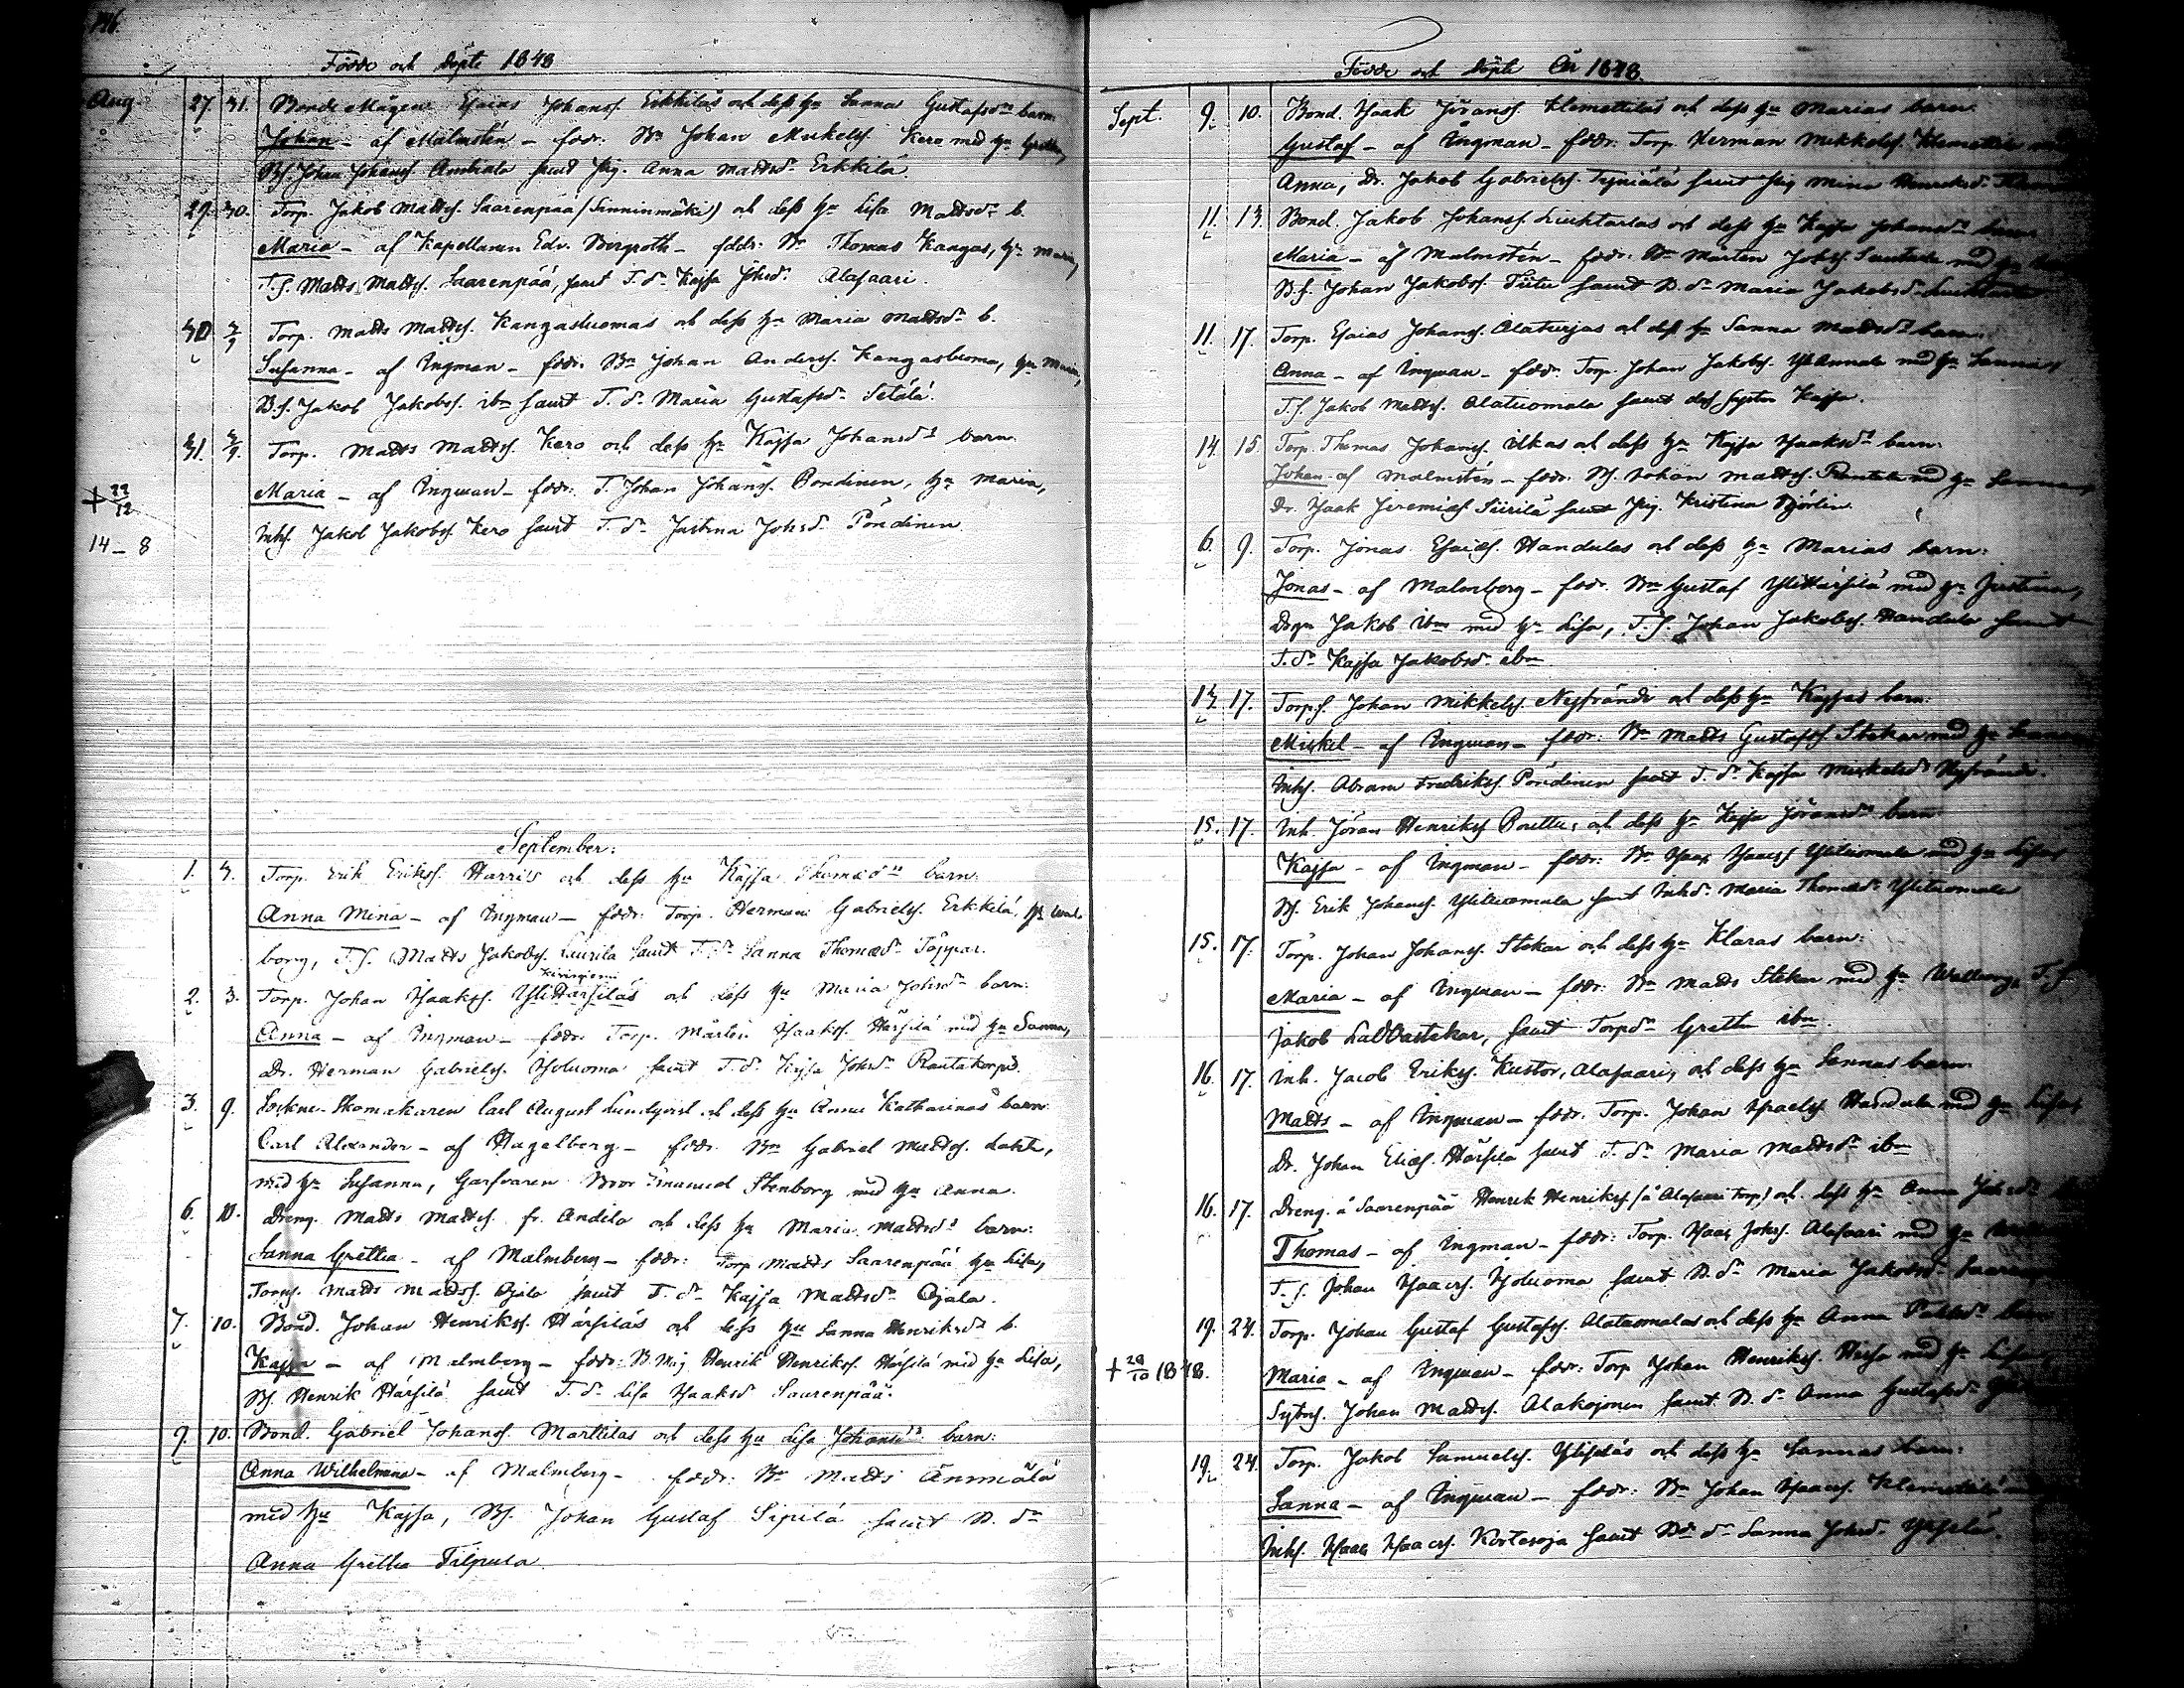 Födde och döpte 1848
Aug. 27. 31. Bonde Mågen Esaias Johanss. Erkkiläs och dess hu Sanna Gustafsdrs barn
Johan - af Malmstén - fddr: Bn Johan Mickelss. Kero med hu Gretha,
Bs. Johan Johanss. Anttila samt Pig. Anna Mattsdr Erkkilä.
29. 30. Torp. Jakob Mattss. Saarenpää (Sinninmäki) och dess hu Lisa Mattsdrs b.
Maria - af Kapellanen Edv. Bergroth - fddr: Bn Thomas Kangas, hu Maria,
T.S. Matts Mattss. Saarenpää, samt T.dr Kajsa Johsdr Alasaari.
30 3/9 Torp. Matts Mattss. Kangasluomas och dess hu Maria Mattsdrs b.
Susanna - af Ingman - fddr. Bn Johan Anderss. Kangasluoma, hu Maria,
B.S. Jakob Jakobss. ibm samt T.dr Maria Gustafsdr Setälä.
31. 3/9. Torp. Matts Mattss. Kero och dess hu Kajsa Johansdrs barn
+ 22/12 Maria - af Ingman - fddr: T. Johan Johanss. Pöndinen, hu Maria,
14 - 8 Inhs. Jakob Jakobss. Kero samt T.dr Justina Johsdr Pöndinen
September:
1. 3. Torp. Erik Erikss. Harris och dess hu Kajsa Thomædrs barn
Anna Mina - af Ingman - fddr: Torp. Herman Gabrielss. Erkkilä, hu Wal
borg, T.S. Matts Jakobss. Laurila samt T.dr Sanna Thomædr Töppar.
2. 3. Torp. Johan Isaakss. YliHärsiläs och dess hu Maria Johsdrs barn:
Anna - af Ingman - fddr. Torp. Mårten Isaakss. Härsilä med hu Sanna,
Dr. Herman Gabrielss. Isoluoma samt T.dr Kajsa Johsdr Rautakorpi.
3. 9. Sockne Skomakaren Carl August Lundqvist och dess hu Anna Katharinas barn
Carl Alexander - af Hagelberg - fddr. Bn Gabriel Mattss. Lahti,
med hu Susanna, Garfvaren Emanuel Stenborg med hu Anna.
6. 10. Dreng. Matts Mattss. fr. Andila och dess hu Maria Mattsdrs barn:
Sanna Gretha - af Malmberg - fddr: Torp Matts Saarenpää hu Lisa,
Torps. Matts Mattss. Ojala samt T.dr Kajsa Mattsdr Ojala.
7. 10. Bond. Johan Henrikss. Härsiläs och dess hu Sanna Henriksdrs b.
Kajsa - af Malmberg - fddr: B.Måg Henrik Henrikss. Härsilä med hu Lisa,
Bs. Henrik Härsilä samt T.dr Lisa Isaaksdr Saarenpää.
9. 10. Bond. Gabriel Johanss. Marttilas och dess hu Lisa Johansdrs barn:
Anna Wilhelmina - af Malmberg - fddr: Bn Matts Änniälä
med hu Kajsa, Bs. Johan Gustaf Sipilä samt B.dr
Anna Gretha Filpula
Födde och döpte År 1848.
Sept. 9. 10. Bond. Isaak Jöranss. Klemettiläs och dess hu Marias barn
Gustaf - af Ingman - fddr: Torp. Herman Mikkelss. Klemettilä
Anna, Dr. Jakob Gabrielss. samt Pig Mina Henriksdr
11. 13. Bond. Jakob Johanss. Luuhtarlas och dess hu Kajsa Johansdrs barn
Maria - af Malmstén - fddr: Bn Mårten Johss. med hu
B.S. Johan Jakobss. samt B.dr Maria Jakobsdr
11. 17. Torp. Esaias Johanss. Alaturjas och dess hu Sanna Mattsdrs barn:
Anna - af Ingman - fddr. Torp. Johan Jakobss. YliAnnala med hu Sanna,
T.S. Jakob Mattss. Alatuomala samt dess syster Kajsa.
14. 15. Torp. Thomas Johanss. Ilkas och dess hu Kajsa Isaaksdrs barn:
Johan - af Malmstén - fddr. Bs. Johan Mattss. Rantala med hu Sanna
Dr. Isaak Jeremiæs. Siirilä samt Pig. Kristina Björlin.
6. 9. Torp. Jonas Esaiæs. Handulas och dess hu Marias barn:
Jonas - af Malmberg - fddr. Bn Gustaf YliHärsilä med hu Justina,
Drgn Jakob ibm med hu Lisa, T.S. Johan Jakobss. Handula samt
T.dr Kajsa Jakobsdr ibm
13 17. Torp.S. Johan Mikkelss. Nyfrände och dess hu Kajsas barn:
Mickel - af Ingman - fddr: Bn Matts Gustafss. Stekar med hu
Inhs. Abram Fredrikss. Pöndinen samt T.dr Kajsa Mickelsdr Nyfrände.
15. 17. Inh. Jöran Henrikss. och dess hu Kajsa Jöransdrs barn
Kajsa - af Ingman - fddr: Bn Isaak Isaacss. Ylituomala med hu Lisa,
Bs. Erik Johanss. Ylituomala samt Inh.dr Maria Thomædr Ylituomala
15. 17. Torp. Johan Johanss. Stekar och dess hu Klaras barn:
Maria - af Ingman - fddr: Bn Matts Stekar med hu Walborg, T.S.
Jakob samt Torp.dr Gretha ibm.
16. 17. Inh. Jacob Erikss. Kustor, Alasaari, och dess hu Sannas barn
Matts - af Ingman - fddr: Torp. Johan Israelss. Handula med hu Lisa,
Dr. Johan Eliæs. Härsilä samt T.dr Maria Mattsdr ibm
16. 17. Dreng. å Saarenpää Henrik Henrikss. (å Alasaari torp) och dess hu Anna Johsdrs
Thomas - af Ingman - fddr: Torp. Isaac Johss. Alasaari med hu
T.S. Johan Isaacss. Isoluoma samt B.dr Maria Jakobsdr
19. 24. Torp. Johan Gustaf Gustafss. Alatuomalas och dess hu Anna barn
+ 28/10 1848. Maria - af Ingman - fddr: Torp Johan Henrikss. med hu Lisa
Sytns. Johan Mattss. Alakojonen samt B.dr Anna Gustafsdr
19. 24. Torp. Jakob Samuelss. och dess hu Sannas barn:
Sanna - af Ingman - fddr: Bn Johan Isaacss. Klemettilä
Inhs. Isaac Isaacss. Kortesoja samt B.dr Sanna Johsdr